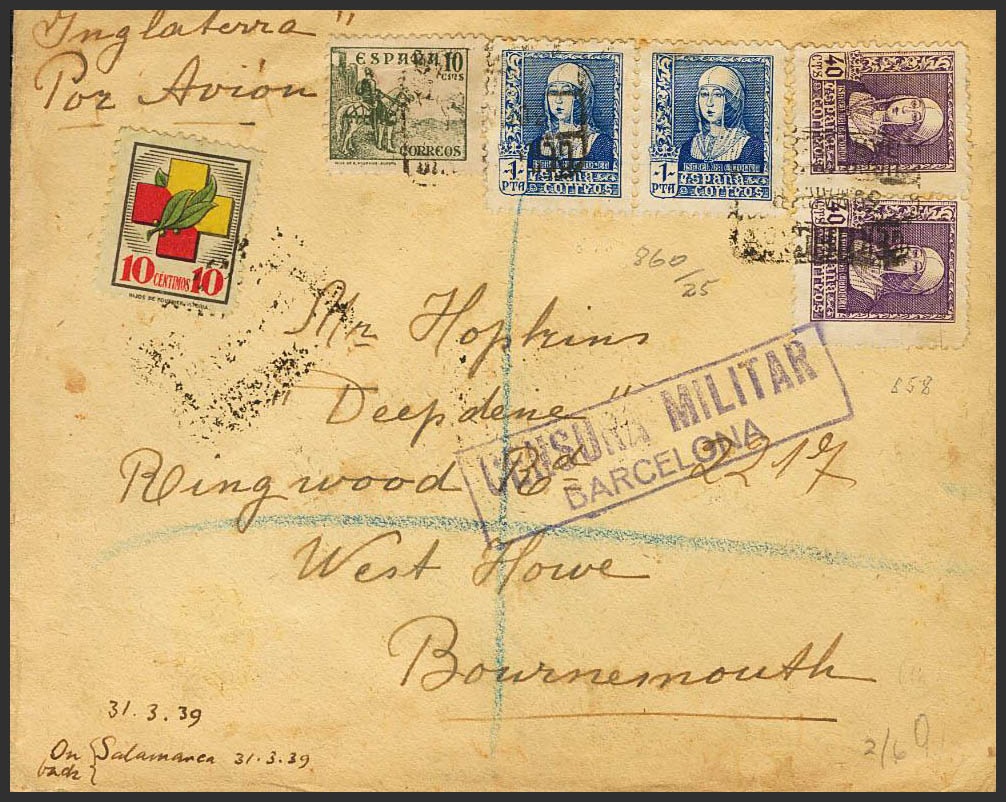 Inglaterra "
Por Avión
ESPAÑA 10
CTMS
CORREOS
1
PTA
ISABEL
ESPAÑA
CORREOS
-1-
PTA
ISABEL
ESPAÑA
CORREOS
40
CTS
ESPAÑA
CORREOS
40
CTS
ESPAÑA
CORREOS
10 CÉNTIMOS 10
HIJOS DE FOURNIER-VITORIA
860/25
Mr Hopkins
"Deepdene"
Ringwood Rd 2217
CENSURA MILITAR
BARCELONA
West Howe
Bournemouth
31.3.39
On back { Salamanca 31.3.39
2/6